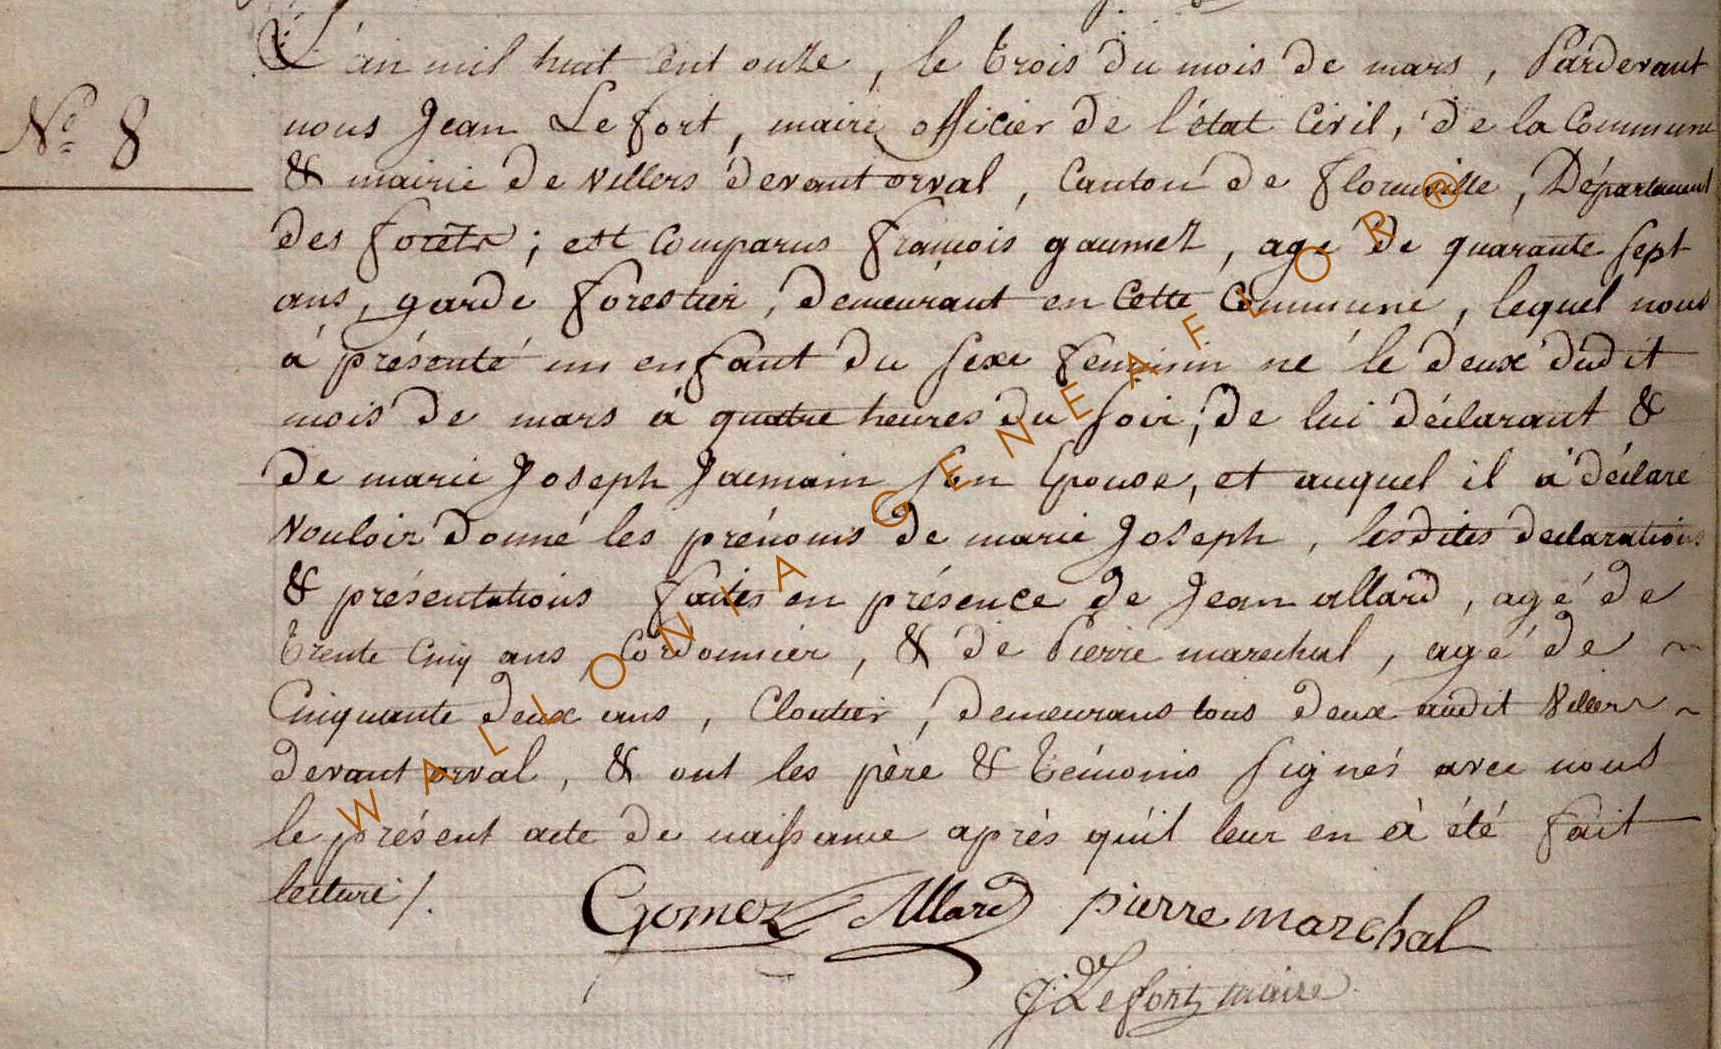 L'an mil huit cent onze, le trois du mois de mars, Pardevant
nous Jean Lefort, maire officier de l'état Civil, de la Commune
N° 8
& mairie de Villers devant orval, Canton de Florenville, Département
des forêts; est Comparus François gaumez, agé de quarante sept
ans, garde forestier, demeurant en Cette Commune, lequel nous
à présenté un enfant du sexe feminin né le deux dudit
mois de mars à quatre heures du soir, de lui déclarant &
de marie Joseph Jacmain son Epouse, et auquel il à déclaré
Vouloir donné les prénoms de marie Joseph, lesdites declarations
& présentations faites en présence de Jean allard, agé de
trente Cinq ans, Cordonnier, & de Pierre marechal, agé de ~
Cinquante deux ans, Cloutier, demeurans tous deux audit Villers ~
devant orval, & ont les père & témoins signés avec nous
le présent acte de naissance après qu'il leur en à été fait
lecture /.
Gomez Allard pierre marchal
J. Lefort maire
WALLONIA GENEAFLOR ®